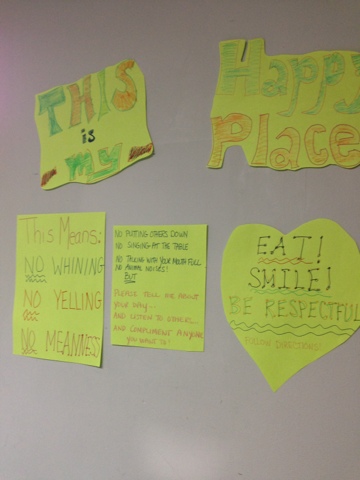 THIS
is
my
Happy
Place
This Means:
NO WHINING
NO YELLING
NO MEANNESS
NO PUTTING OTHERS DOWN
NO SINGING AT THE TABLE
NO TALKING WITH YOUR MOUTH FULL
NO ANIMAL NOISES!
BUT
PLEASE TELL ME ABOUT
YOUR DAY...
AND LISTEN TO OTHERS...
AND COMPLIMENT ANYONE
YOU WANT TO!
EAT!
SMILE!
BE RESPECTFUL
FOLLOW DIRECTIONS!